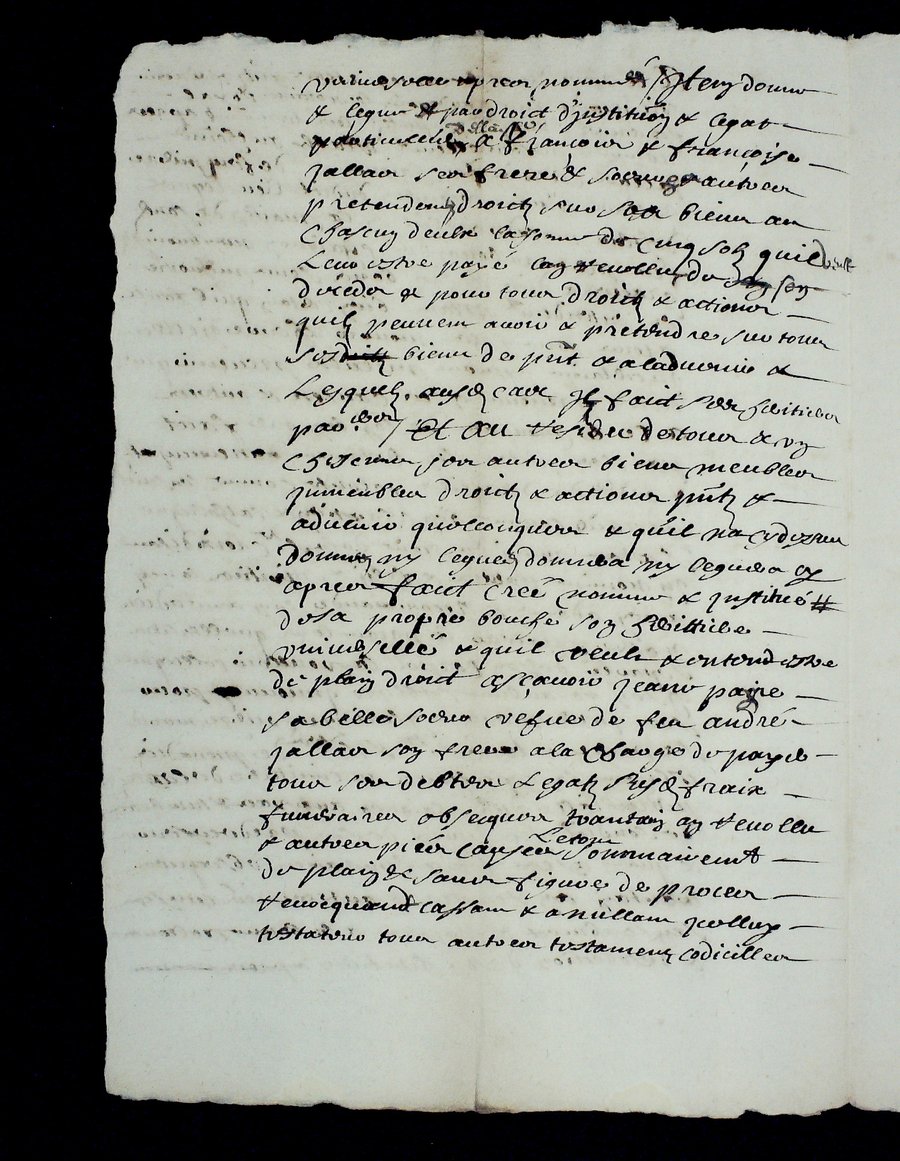 universelle apres nommée / Item donne
& legue & par droict d'jnstitution & legat
particulier a françois & françoise
jallas ses frere & soeur & autres
pretendens droictz sur ses biens au
Chascun deulx la somme de cinq solz quil veult
Leur estre payé lan revollu de son
decedz & pour tous droictz & actions
quilz peuvent avoir & pretendre sur tous
sesditz biens de pnt & aladvenir &
Lesquelz ausd cas jl faict ses heritiers
par / Et au residu de tous & un
Chascuns ses autres biens meubles
jmmeubles droictz & actions pntz &
advenir quelconques & quil na cydessus
donnes ny legues donnera ny leguera cy
apres faict creé nomme & jnstitué #
desa propre bouche son heritiere
universelle & quil veult & entend estre
de plain droict asçavoir jeane
sa belle soeur vefve de feu andré
jallas son frere ala charge de payer
tous ses debtes Legatz fraix
funeraires obseques trantain an revollu
& autres pies causes Le tout sommairement
de plain & sans figure de proces
revocquand cassant & anullant jcelluy
testateur tous autres testamens codicilles